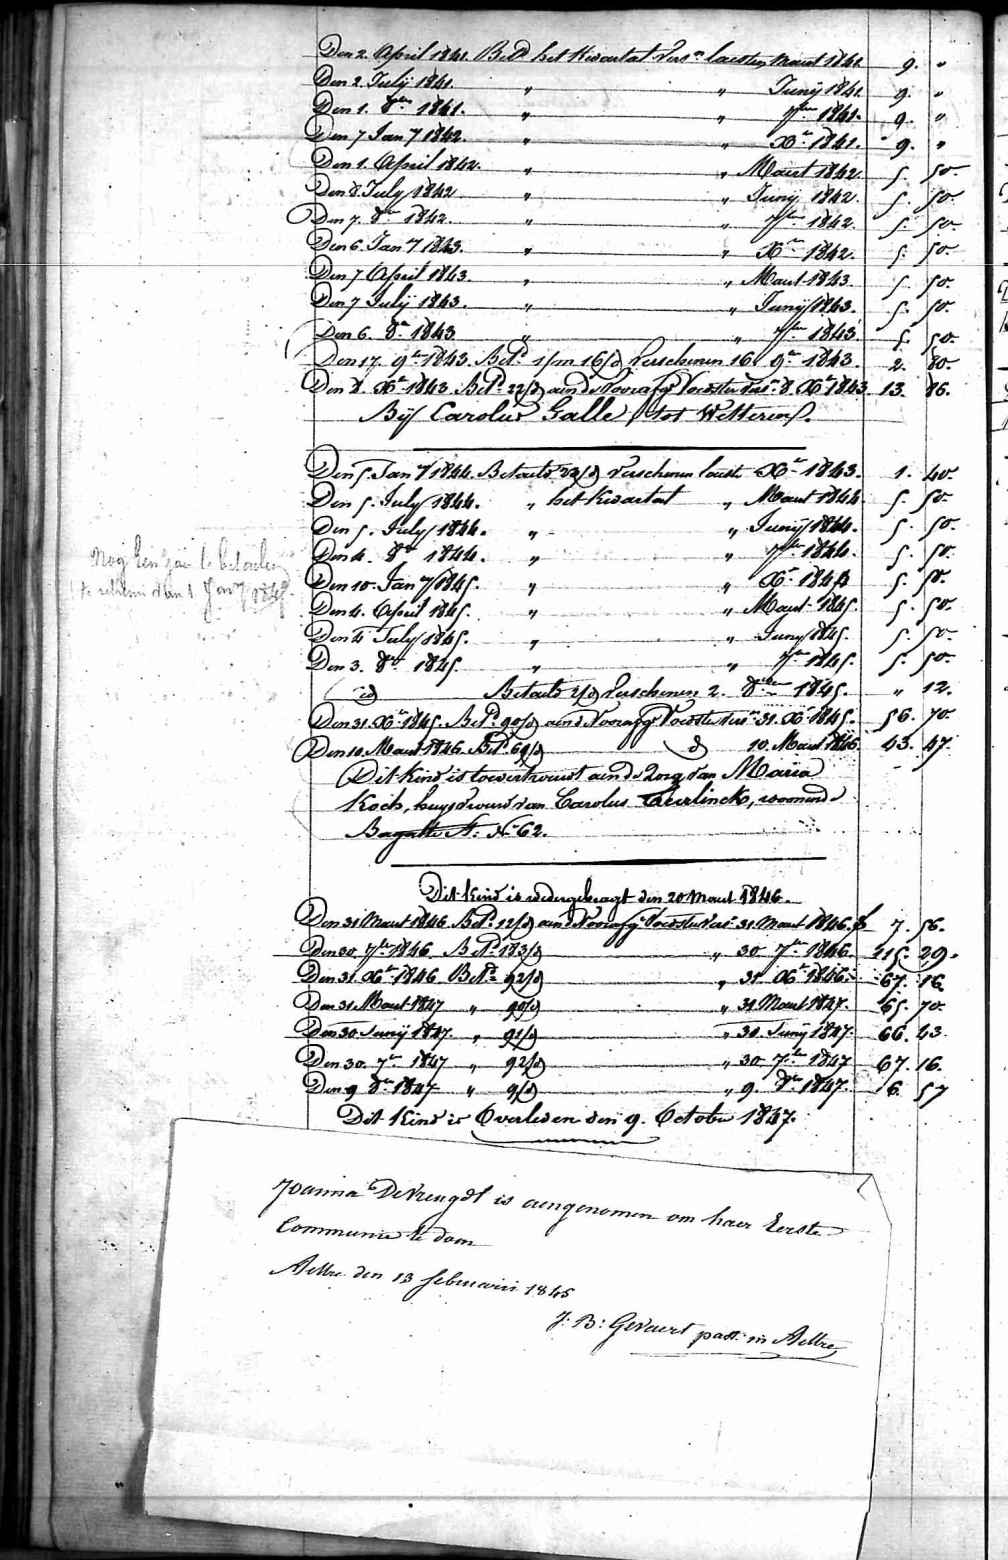 Den 2. April 1841. Bet.d het Kwartal Vers.n laesten Maart 1841. 9. "
Den 2. July 1841. " " Junij 1841. 9. "
Den 1. 8.re 1841. " " 7.bre 1841. 9. "
Den 7 Jan.y 1842. " " X.re 1841. 9. "
Den 1. April 1842. " " Maart 1842. 5. 50.
Den 8. July 1842 " " Junij 1842. 5. 50.
Den 7. 8.re 1842. " " 7.bre 1842. 5. 50.
Den 6. Jan.y 1843. " " X.re 1842. 5. 50.
Den 7 April 1843. " " Maart 1843. 5. 50.
Den 7 July 1843. " " Junij 1843. 5. 50.
Den 6. 8.re 1843 " " 7.bre 1843. 5. 50.
Den 17. 9.re 1843. Bet.d 1/m 16/d Verschenen 16 9.re 1843. 2. 80.
Den 8. X.re 1843. Bet.d 22/d aen de Voorafg.e Voedster Vers.n 8. X.re 1843. 13. 86.
Bij Carolus Galle tot Wetteren.
Den 5. Jan.y 1844. Betaeld 23/d Verschenen laeste X.re 1843. 1. 40.
Den 5. July 1844. " het Kwartal " Maart 1844 5. 50.
Den 5. July 1844. " " Junij 1844. 5. 50.
Den 4. 8.re 1844. " " 7.bre 1844. 5. 50.
Den 10. Jan.y 1845. " " X.re 1844 5. 50.
Den 4. April 1845. " " Maart 1845. 5. 50.
Den 4 July 1845. " " Juny 1845. 5. 50.
Den 3. 8.re 1845. " " 7.bre 1845. 5. 50.
id Betaeld 2/d Verschenen 2. 8.bre 1845. " 12.
Den 31. X.re 1845. Bet.d 90/d aen de Voorafg.e Voedster Vers.n 31. X.re 1845. 56. 70.
Den 10. Maart 1846. Bet.d 69/d d 10. Maart 1846. 43. 47
Dit Kind is toevertrouwt aen de Zorg van Maria
Koch, huysvrouw van Carolus Geirlinck, woonende
Bagatte St. N.o 62.
Nog een jaer te betaelen
1 Jan.y 1845.
Dit Kind is wedergebragt den 20 Maart 1846.
Den 31 Maart 1846 Bet.d 12/d aen de Voorafg.e Voedster Vers.n 31 Maart 1846. f 7. 56.
Den 30. 7.bre 1846 Bet.d 183/d " 30 7.bre 1846. 115. 29.
Den 31. X.re 1846 Bet.d 92/d " 31 X.re 1846. 67. 16
Den 31. Maart 1847 " 90/d " 31 Maart 1847. 65. 70.
Den 30. Junij 1847. " 91/d " 30. Junij 1847. 66. 43
Den 30. 7.bre 1847 " 92/d " 30 7.bre 1847 67. 16.
Den 9 8.re 1847 " 9/d " 9. 8.re 1847. 6. 57
Dit Kind is Overleden den 9. October 1847.
Joanna DeVreugdt is aengenomen om haer Eerste
Communie te doen
Aeltre den 13 februarii 1845
J: B: Gevaert past. in Aeltre